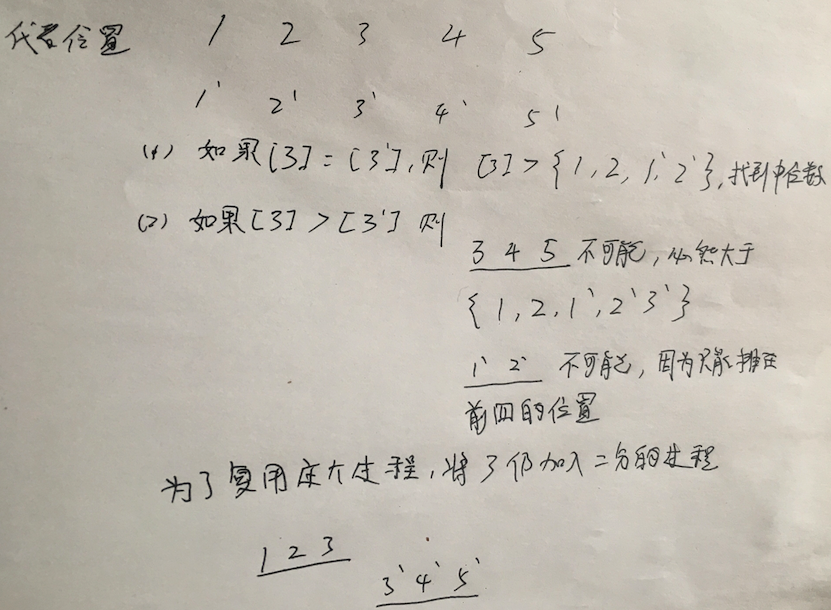 代表位置 1 2 3 4 5
1' 2' 3' 4' 5'
(1) 如果[3]=[3'],则 [3]>{1,2,1',2'},找到中位数
(2) 如果[3]>[3'] 则
3 4 5 不可能,必然大于
{1,2,1',2'3'}
1' 2' 不可能,因为只能排在
前四的位置
为了复用这个过程,将3仍加入二分的过程
1 2 3
3' 4' 5'